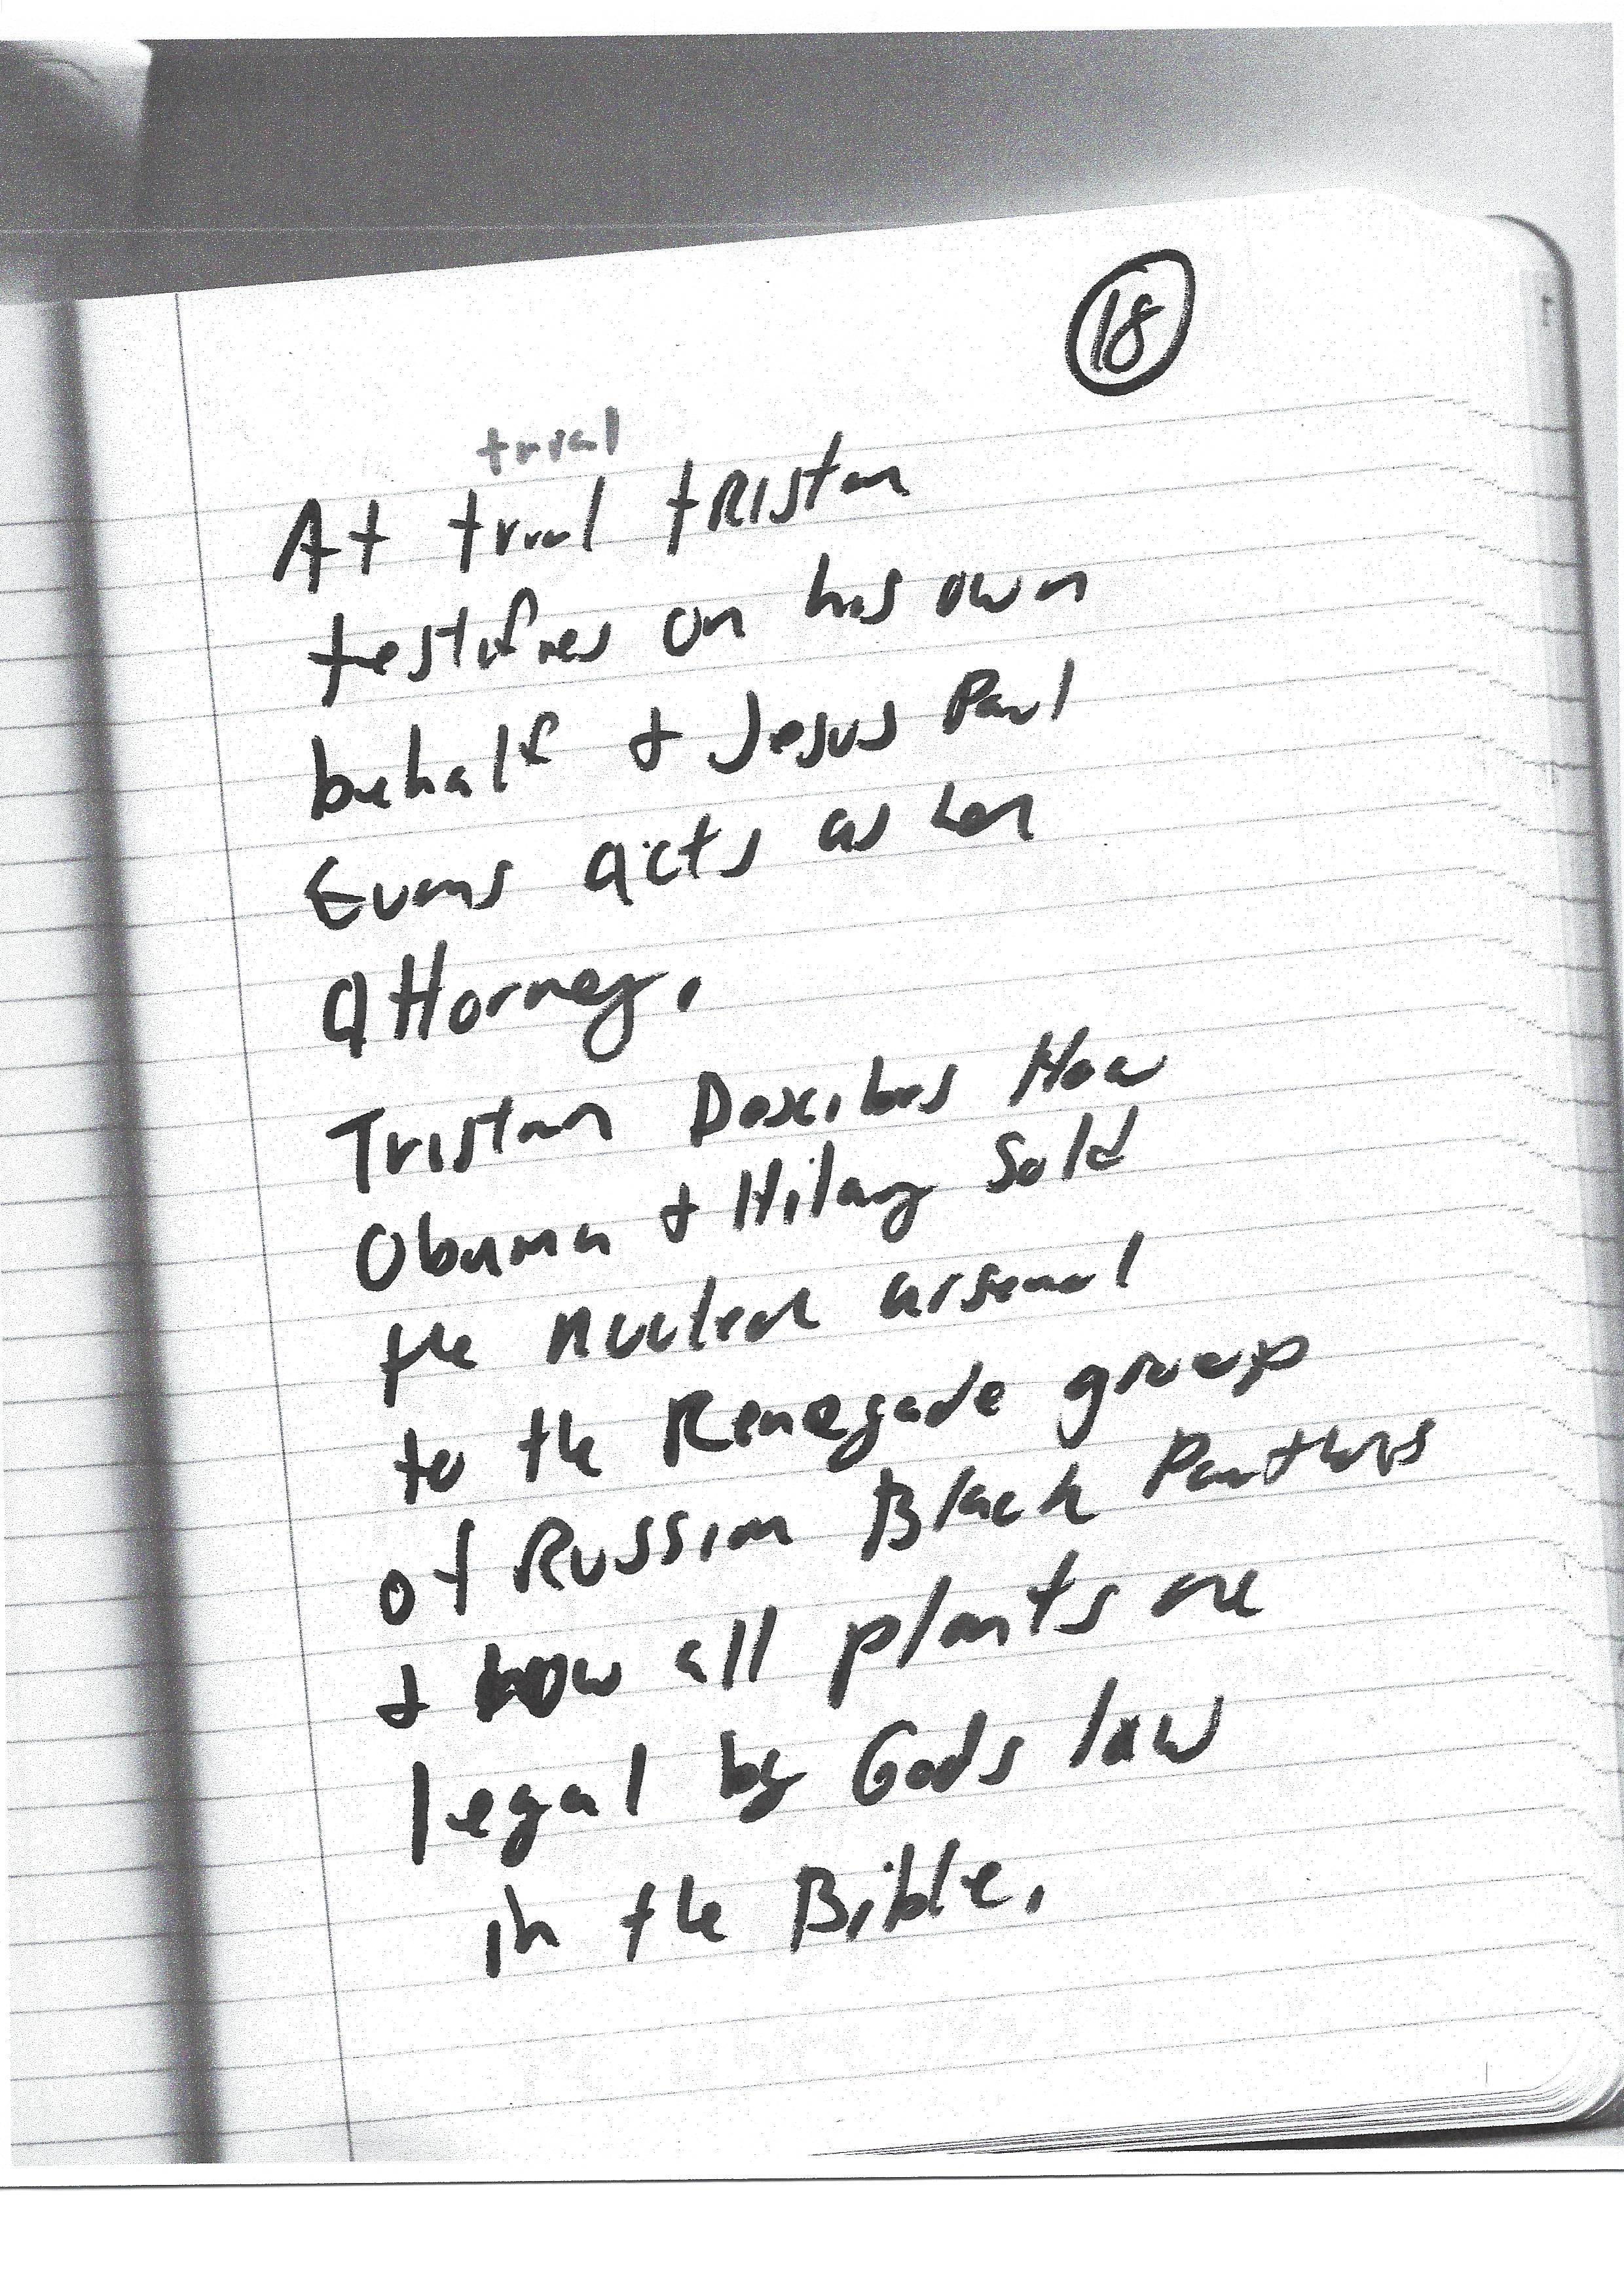 18
trial
At trial tRIstan
testifies on his own
behalf & Jesus Paul
Evans acts as her
attorney.
Tristan Describes How
Obama & Hilary Sold
the nuclear arsenal
to the Renegade group
of Russian Black Panthers
& how all plants are
legal by Gods law
in the Bible.